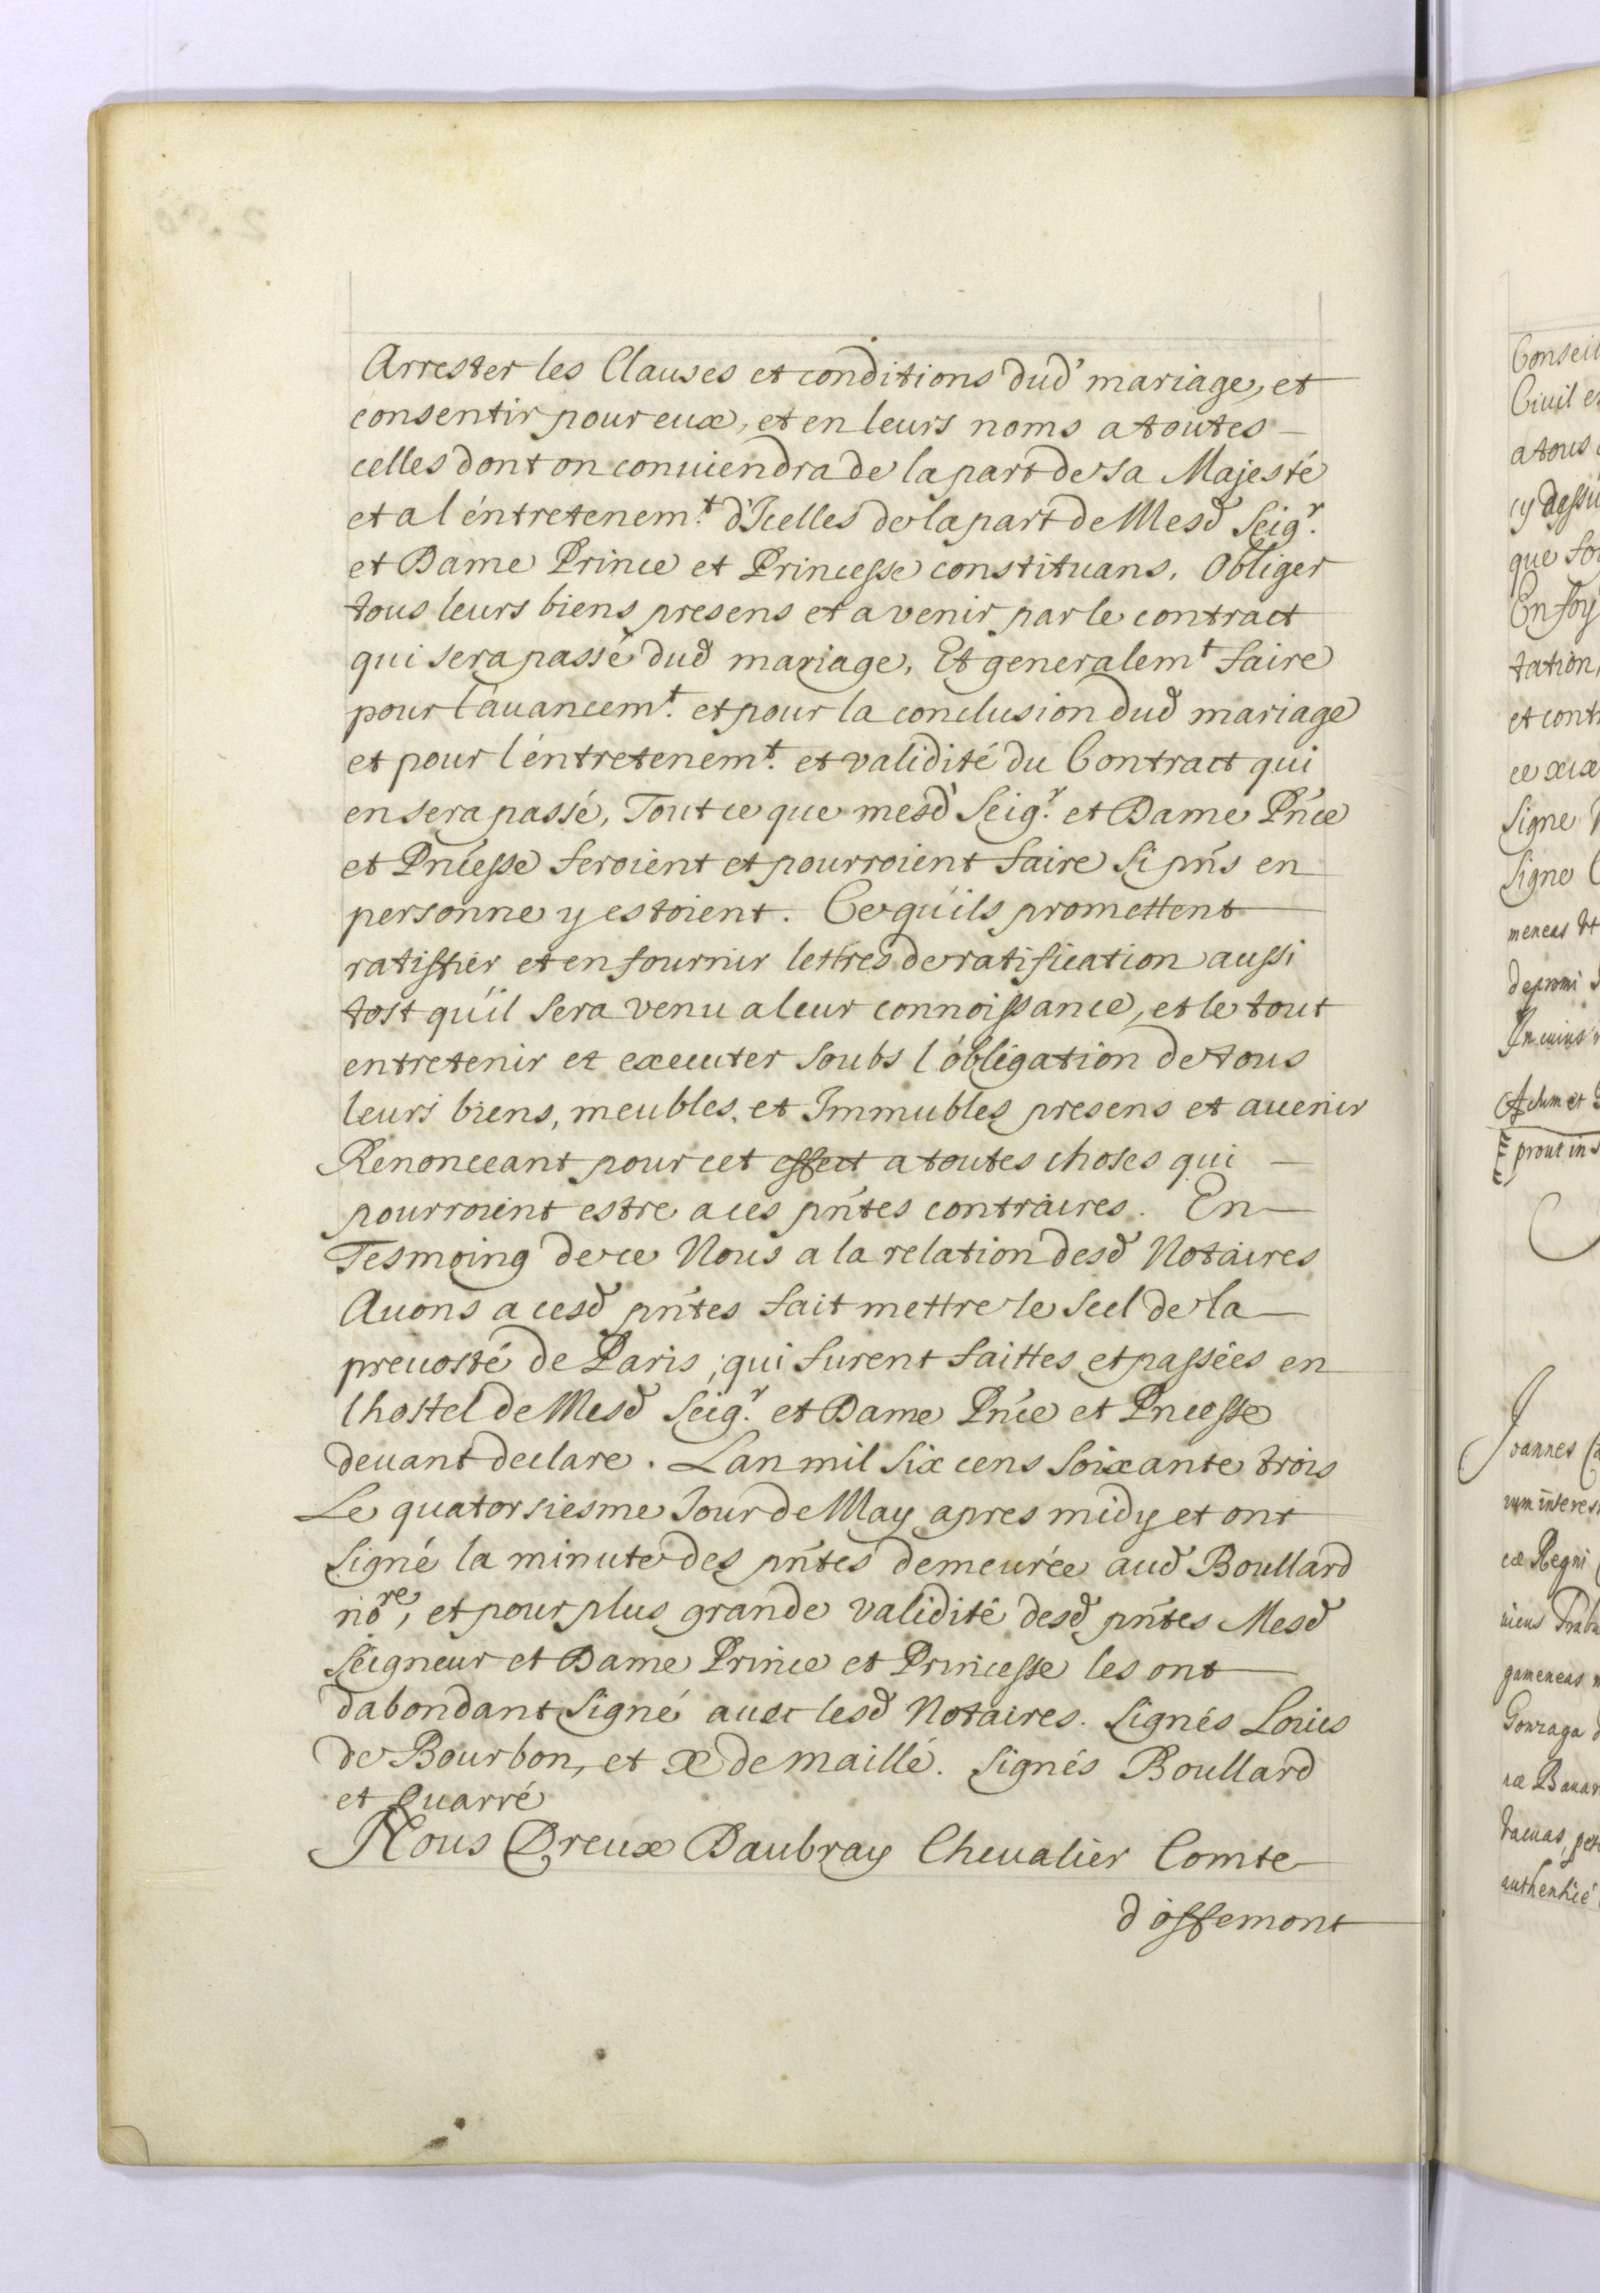 Arrester les Clauses et conditions dud' mariage, et
consentir pour eux, et en leurs noms a toutes
celles dont on conuiendra de la part de sa Majesté
et a l'éntretenem.t d'Icelles de la part de Mesd' Seig.r
et Dame Prince et Princesse constituans. Obliger
tous leurs biens presens et a venir par le contract
qui sera passé dud mariage, Et generalem.t faire
pour l'auancem.t et pour la conclusion dud mariage
et pour l'éntretenem.t et validité du Contract qui
en sera passé, Tout ce que mesd' Seig.r et Dame Pn'ce
et Pn'cesse feroient et pourroient faire Si pn's en
personne y estoient. Ce qu'ils promettent
ratiffier et en fournir lettres de ratification aussi
tost qu'il sera venu a leur connoissance, et le tout
entretenir et executer soubs l'óbligation de tous
leurs biens, meubles, et Immubles presens et auenir
Renonceant pour cet effect a toutes choses qui
pourroient estre a ces pn'tes contraires. En
Tesmoing de ce Nous a la relation desd Notaires
Auons a cesd pn'tes fait mettre le scel de la
preuosté de Paris; qui furent faittes et passées en
lhostel de Mesd Seig.r et Dame Pn'ce et Pncesse
deuant declare. Lan mil six cens soixante trois
Le quatorsiesme Jour de May apres midy et ont
signé la minute des pn'tes demeurée aud Boullard
no.re, et pour plus grande validité desd pn'tes Mesd
Seigneur et Dame Prince et Princesse les ont
dabondant signé auec lesd Notaires. Signés Louis
de Bourbon, et CC de Maillé. Signés Boullard
et Quarré
Nous Dreux Daubray Cheualier Comte
d'óffemont
Conseil
Ciuil et
a tous
cy dessu
que
En foy
tation,
et cont
Signe
Signe
meneas
depromi
In cuius
Actum et
prout in
Joannes
rum interes
cæ Regni
gameneas
Gonzaga
næ Bauar
authentic